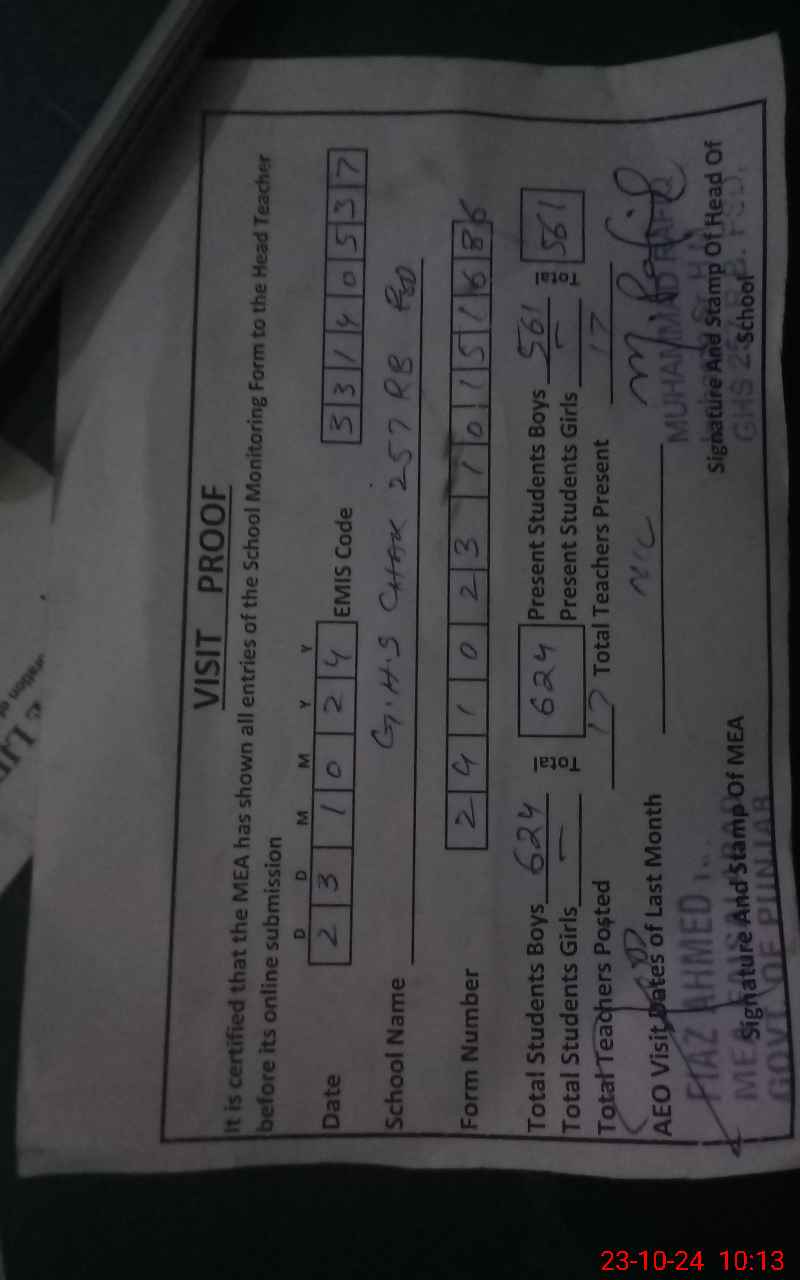 VISIT PROOF
It is certified that the MEA has shown all entries of the School Monitoring Form to the Head Teacher
before its online submission
D D M M Y Y
Date 2 3 1 0 2 4 EMIS Code 3 3 1 4 0 5 3 7
School Name G.H.S CHAK 257 RB FSD
Form Number 2 4 1 0 2 3 1 0 1 5 1 6 8 6
Total Students Boys 624 Total 624 Present Students Boys 561 Total 561
Total Students Girls – Present Students Girls –
Total Teachers Posted 17 Total Teachers Present 17
AEO Visit Dates of Last Month NIL
M Rafiq
FIAZ AHMED
MUHAMMAD RAFIQ
Signature And Stamp Of MEA
Signature And Stamp Of Head Of
School
MEA FAISALABAD
GOVT. OF PUNJAB
GHS 257 R.B. FSD.
23-10-24 10:13